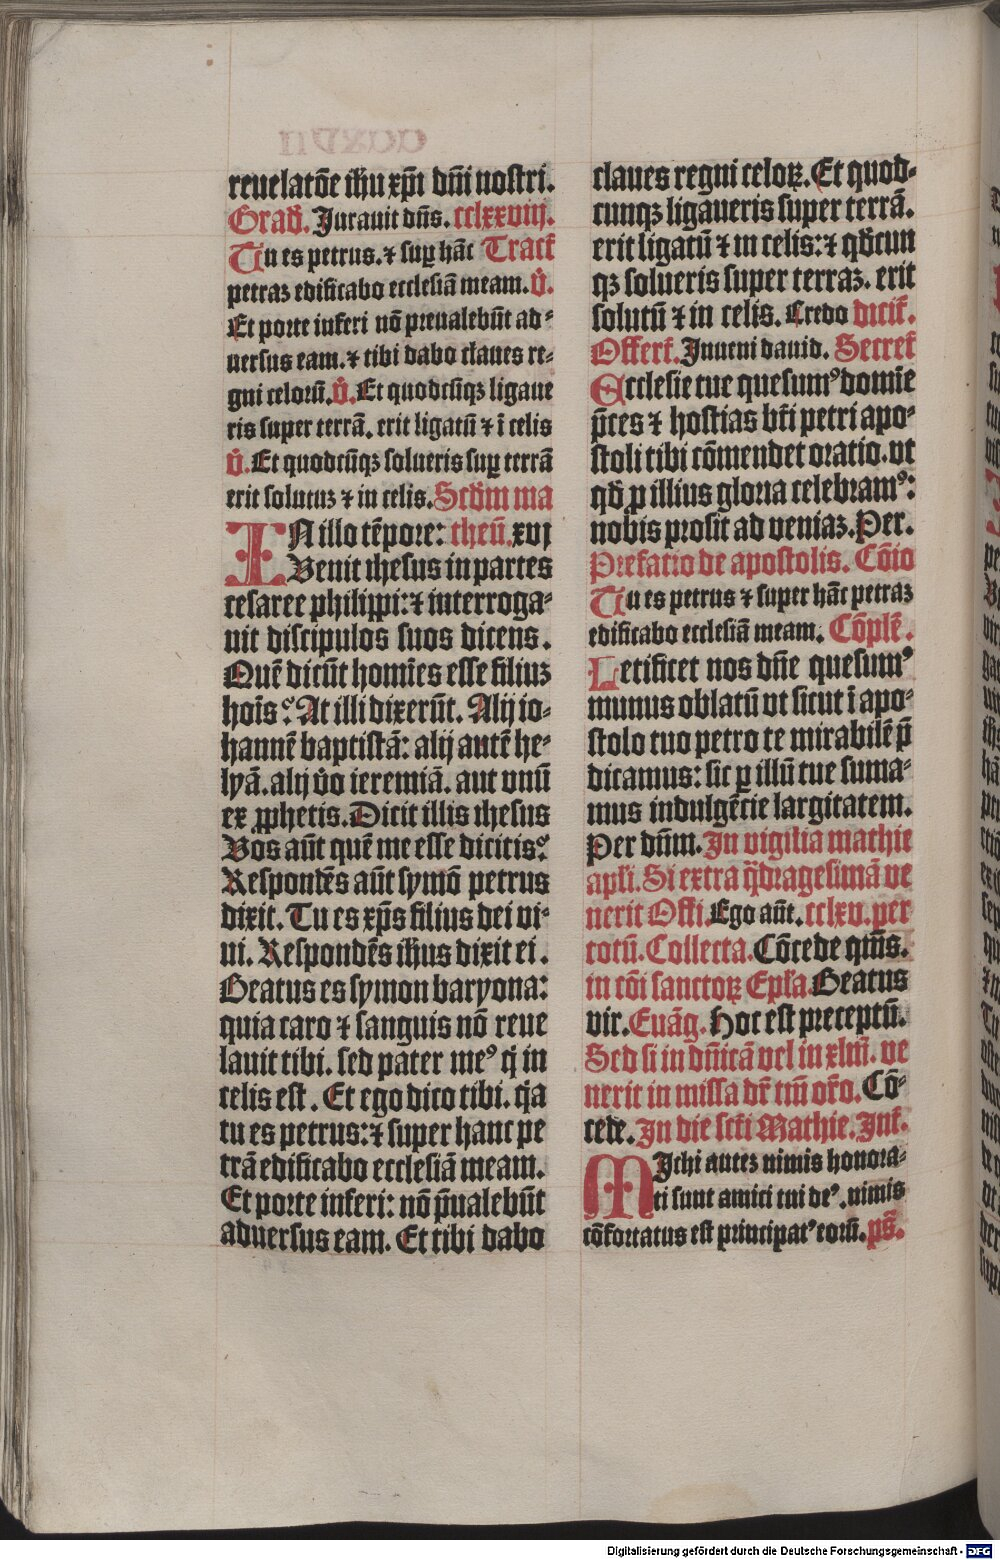 reuelatōe ih̄u xp̄i dn̄i nostri.
Grad̄. Jurauit dn̄s. cclxxviij.
Tu es petrus. ⁊ suꝑ hāc Tract̄
petraʒ edificabo ecclesiā meam. v̄.
Et porte inferi nō preualebūt ad⸗
uersus eam. ⁊ tibi dabo claues re⸗
gni celorū. v̄. Et quodcūqʒ ligaue
ris super terrā. erit ligatū ⁊ ī celis
v̄. Et quodcūqʒ solueris suꝑ terrā
erit solutuʒ ⁊ in celis. Scdm̄ ma
IN illo tēpore: theū. xvj
Venit ihesus in partes
cesaree philippi: ⁊ interroga⸗
uit discipulos suos dicens.
Quē dicūt homīes esse filiuʒ
hoīs? At illi dixerūt. Alij io⸗
hannē baptistā: alij autē he⸗
lyā. alij v̄o ieremiā. aut vnū
ex ꝓphetis. Dicit illis ihesus
Vos aūt quē me esse dicitis?
Respondēs aūt symō petrus
dixit. Tu es xp̄s filius dei vi⸗
ui. Respondēs ih̄us dixit ei.
Beatus es symon baryona:
quia caro ⁊ sanguis nō reue
lauit tibi. sed pater meꝰ q̄ in
celis est. Et ego dico tibi. q̄a
tu es petrus: ⁊ super hanc pe
trā edificabo ecclesiā meam.
Et porte inferi: nō p̄ualebūt
aduersus eam. Et tibi dabo
claues regni celoꝝ. Et quod⸗
cunqʒ ligaueris super terrā.
erit ligatū ⁊ in celis: ⁊ qd̄cun
qʒ solueris super terraʒ. erit
solutū ⁊ in celis. Credo dicit̄.
Offert̄. Inueni dauid. Secret̄
Ecclesie tue quesumꝰ domīe
p̄ces ⁊ hostias bt̄i petri apo⸗
stoli tibi cōmendet oratio. vt
qd̄ ꝑ illius gloria celebramꝰ:
nobis prosit ad veniaʒ. Per.
Prefatio de apostolis. Cōio
Tu es petrus ⁊ super hāc petraʒ
edificabo ecclesiā meam. Cōplē.
Letificet nos dn̄e quesumꝰ
munus oblatū vt sicut ī apo⸗
stolo tuo petro te mirabilē p̄
dicamus: sic ꝑ illū tue suma⸗
mus indulgēcie largitatem.
Per dn̄m. In vigilia mathie
apl̄i. Si extra q̄dragesimā ve
nerit Offi. Ego aūt. cclxv. per
totū. Collecta. Cōcede qm̄s.
in cōi sanctoꝝ Epl̄a. Beatus
vir. Euāg. Hoc est preceptū.
Sed si in dn̄icā vel in xlm̄. ve
nerit in missa dr̄ tm̄ or̄o. Cō⸗
cede. In die sc̄ti Mathie. Int̄.
Michi auteʒ nimis honora⸗
ti sunt amici tui deꝰ. nimis
cōfortatus est principatꝰ eorū. ps̄.
Digitalisierung gefördert durch die Deutsche Forschungsgemeinschaft - DFG